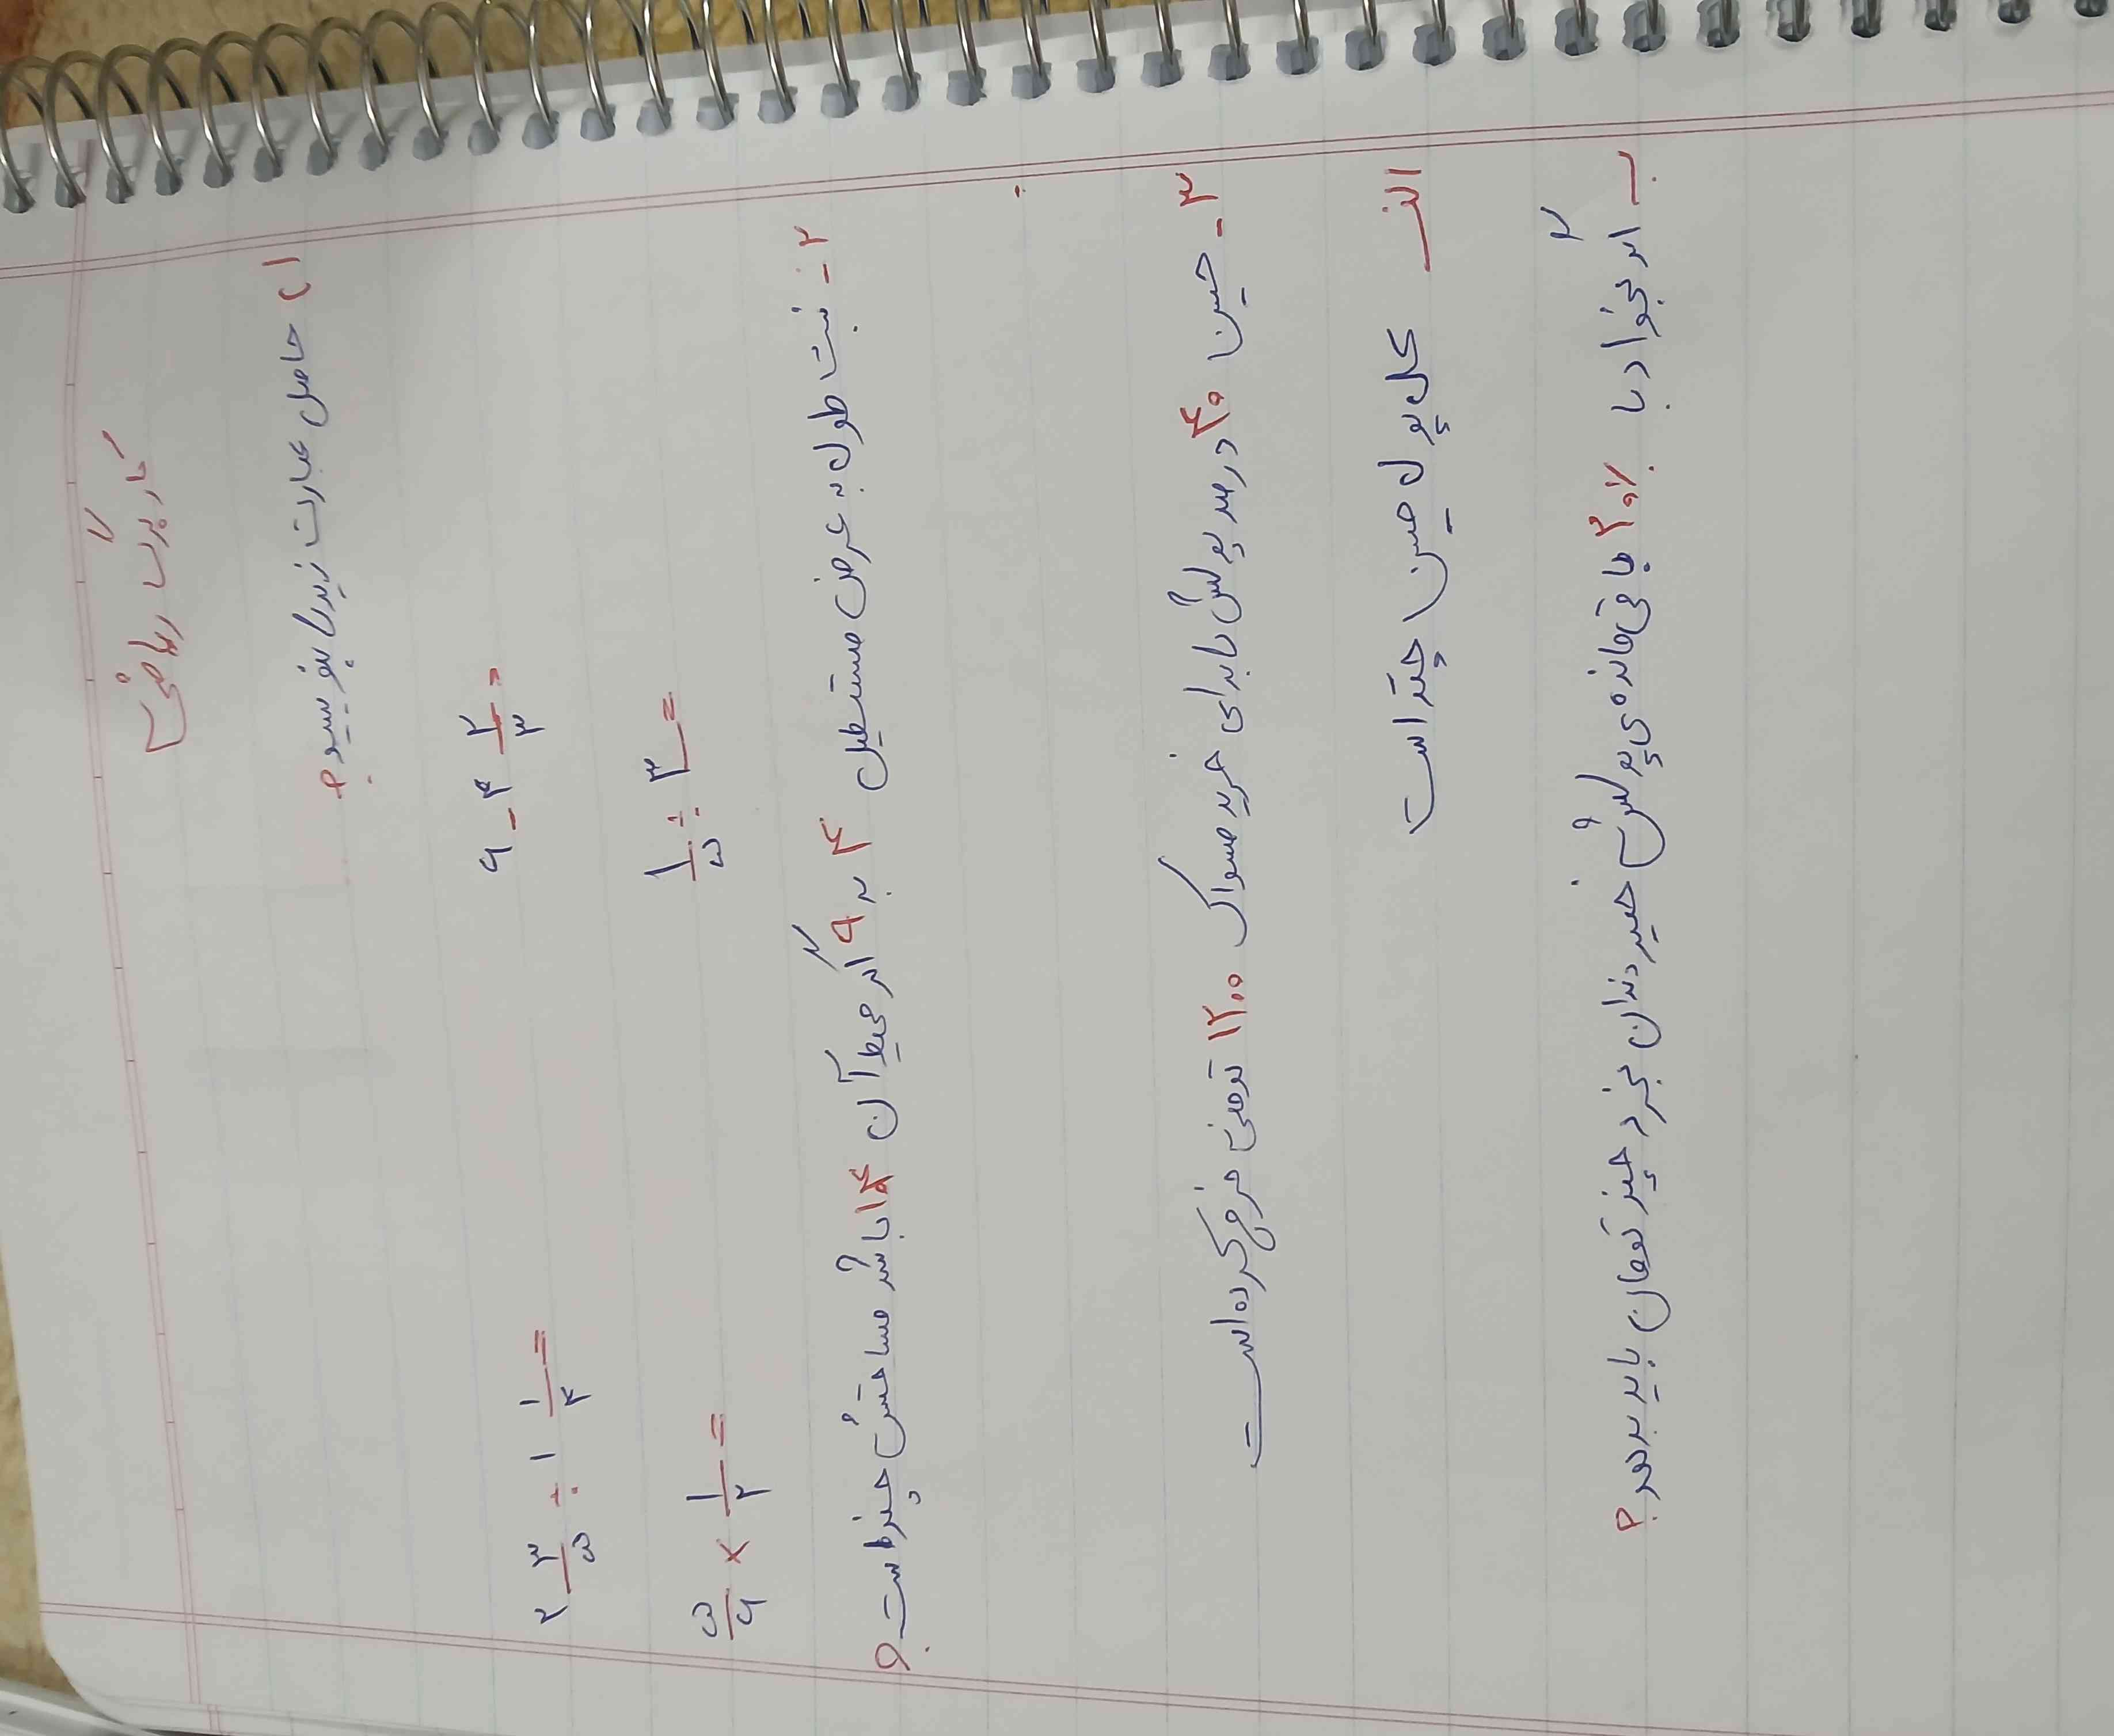 کاربرگ ریاضی
۱) حاصل عبارت زیر را بنویسید؟
۶ - ۴ ۲/۳ =
۲ ۳/۵ ÷ ۱ ۱/۴ =
۱/۵ ÷ ۳ =
۵/۶ × ۱/۲ =
۲- نسبت طول به عرض مستطیل ۴ به ۹ اگر محیط آن باشد مساحتش چیقدر است؟
۳- حسین ۴۰ درصد پولش را برای خرید مسواک ۱۲۰۰ تومنی خرج کرده است
الف کل پول حسین چقدر است
ب اگر بخواد با ۲۰٪ باقی مانده ی پولش خمیر دندان بخرد چیقدر تومان باید بدهد؟